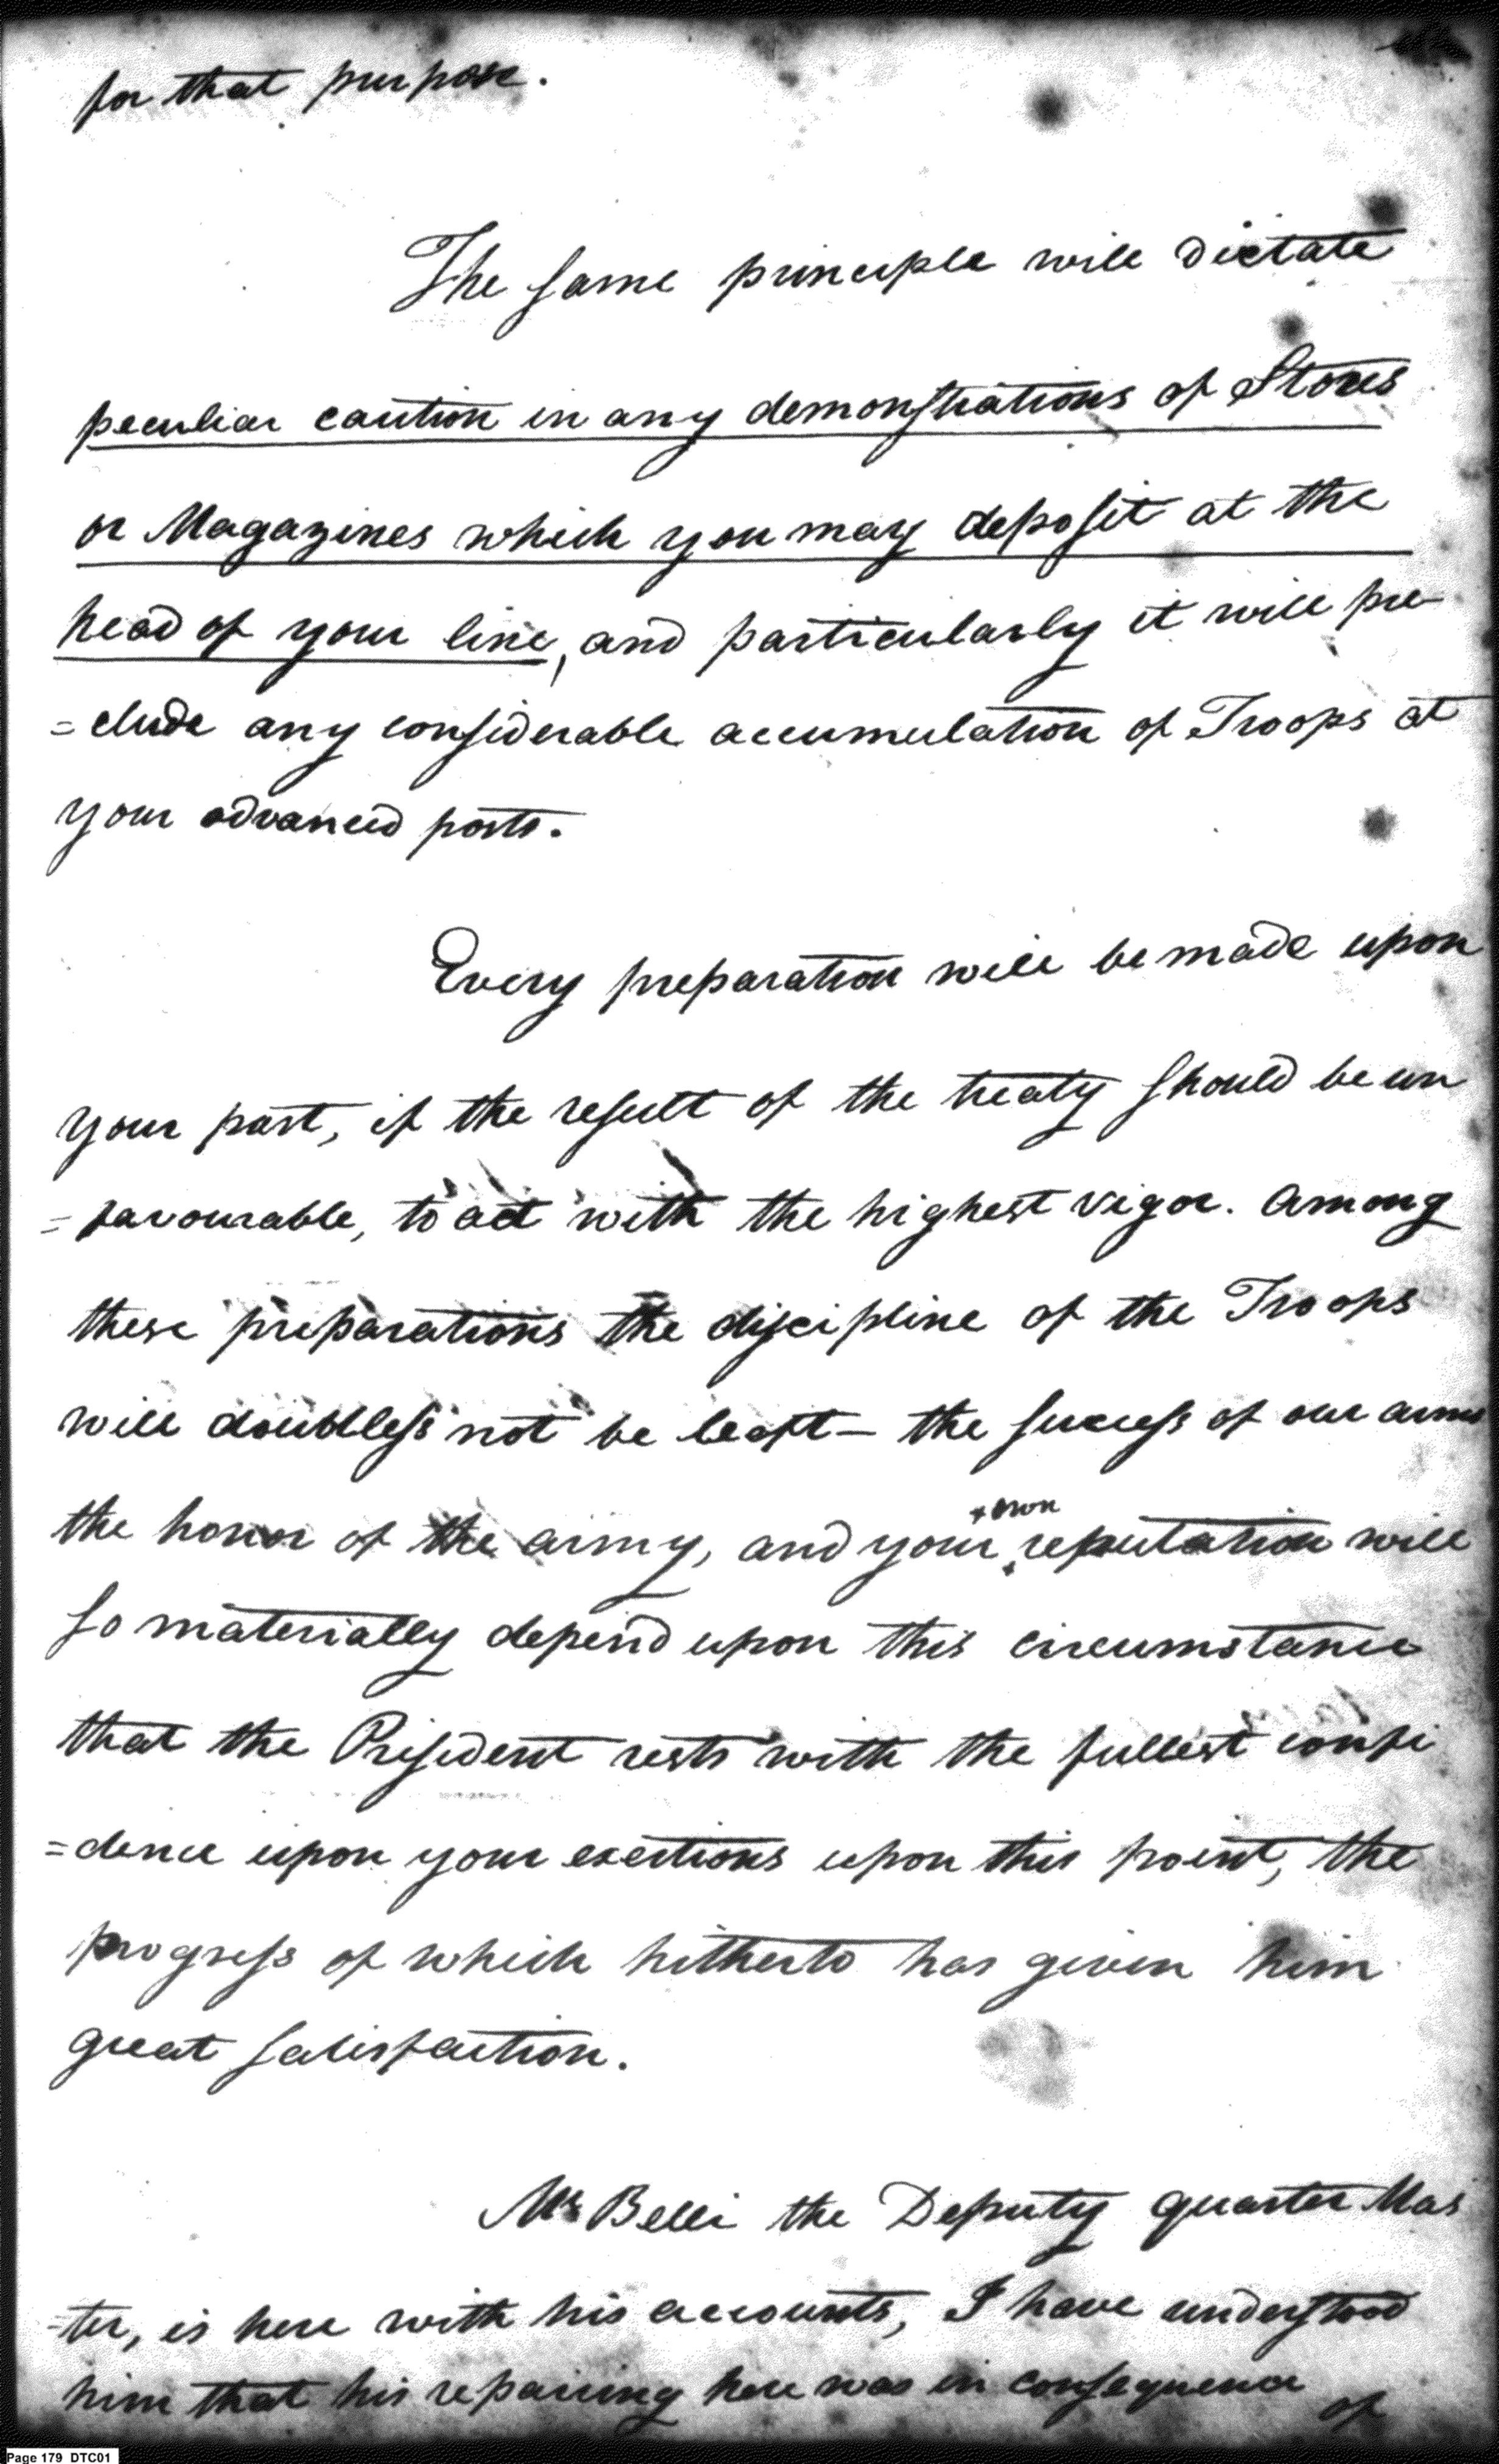 for that purpose.
The same principle will dictate
peculiar caution in any demonstrations of Stores
or Magazines which you may deposit at the
head of your line, and particularly it will pre
=clude any considerable accumulation of Troops at
your advanced posts.
Every preparation will be made upon
your part, if the result of the treaty should be un
=favourable, to act with the highest vigor. Among
these preparations the discipline of the Troops
will doubtless not be least — the success of our arms
the honor of the army, and your + own reputation will
so materially depend upon this circumstance
that the President rests with the fullest confi
=dence upon your exertions upon this point, the
progress of which hitherto has given him
great satisfaction.
Mr Belli the Deputy quarter Mas
=ter, is here with his accounts, I have understood
him that his repairing here was in consequence
of
Page 179 DTC01